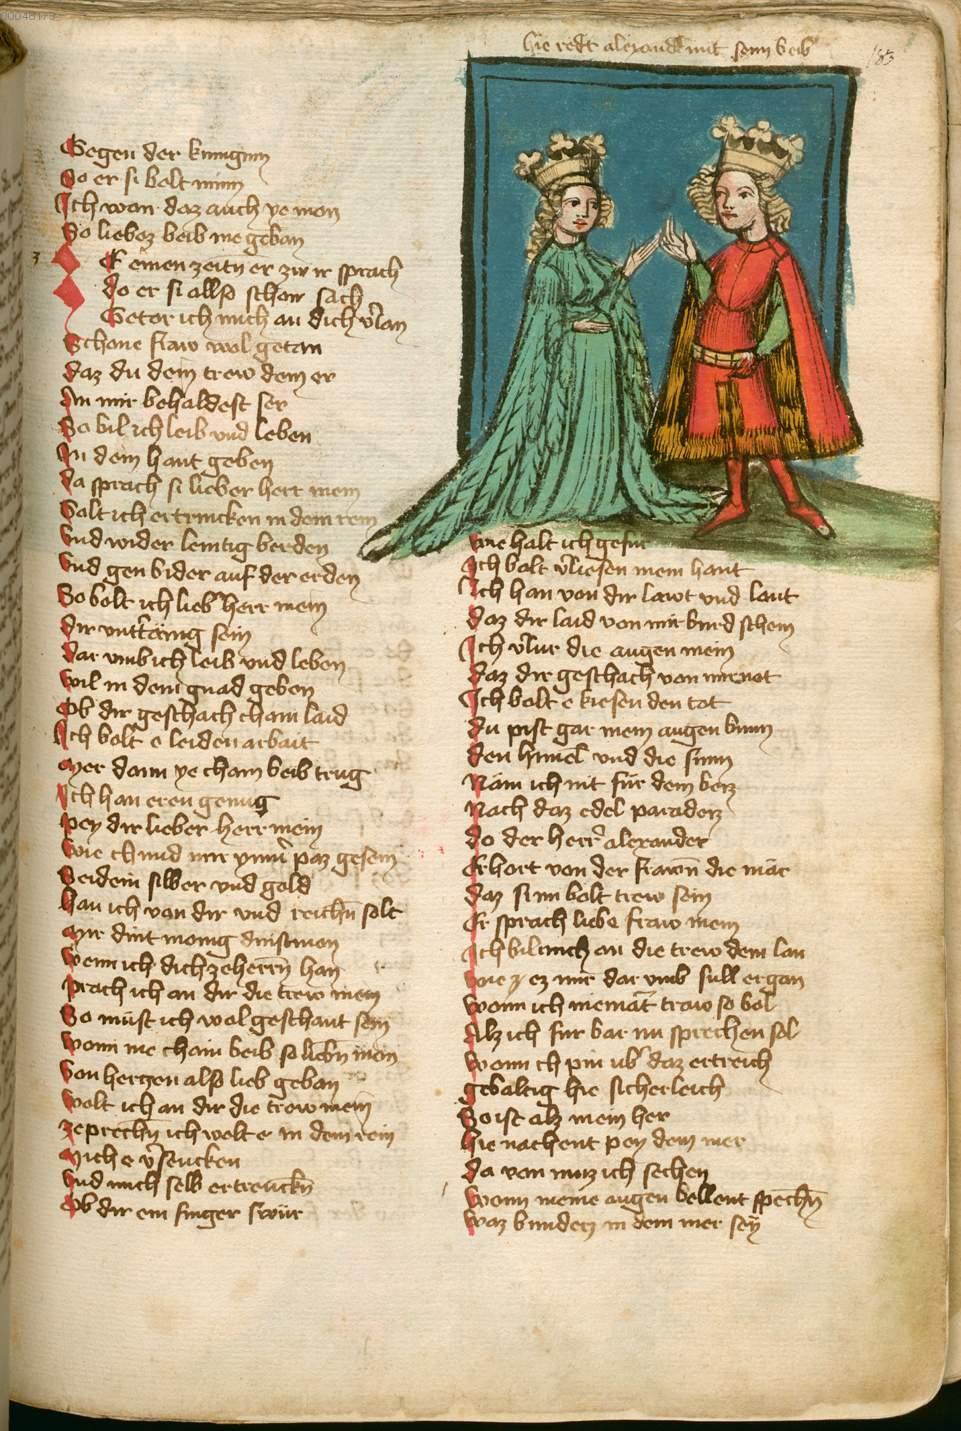 00048173
hie redt alexander mit seim beib
183
Gegen der kunigmn
So er si bolt minn
Ich wan daz auch ye man
So liebez beib me geban
3
Ee einen zeitn er zw ir sprach
do er si allso schon sach
Getor ich mich an dich v̓lan
Schone fraw wol getan
daz du dein trew dem er
An mir behaldest ser
So bil ich leib vnd leben
In dem haut geben
da sprach si lieber herr mein
Solt ich ertrincken in dem rein
Vnd wider lemtig berden
Vnd gen bider auf der erden
So bolt ich lieb̓ herr mein
dir vnttänig sein
dar vmb ich leib vnd leben
wil in dein gnad geben
Ob dir geschach cham laid
Ich bolt e leiden arbait
Mer dann ye cham beib trug
Ich han eren genug
pey dir lieber herr mein
wie ch mid mir ymm̓ paz gesein
Seidein silber vnd gold
han ich von dir vnd reichn̄ solt
Mir dint manig dinstman
Wenn ich dich ze herrn̄ han
prach ich an dir die trew mein
So müst ich wol geschant sein
wann me cham beib so liebn̄ man
Von herczen also lieb geban
wolt ich an dir die trew mein
zeprechn̄ ich wolt e in dem rein
Mich e v̓sencken
Vnd mich selb ertrenckn̄
Ob dir ein finger swür
wie halt ich gefur
Ich bolt v̓liesen mein haut
Ich han von dir lawt vnd laut
daz dir laid von mir burd schein
Ich v̓lür die augen mein
daz dir geschach von mir not
Ich bolt e kiesen den tot
du pist gar mein augen bunn
den himel vnd die sunn
Näm ich nit für dem berz
Nach daz edel paraderz
do der herr̓ alexander
Erhort von der frawn̄ die mär
daz si im bolt trew sein
Er sprach liebe fraw mein
Ich bil mich an die trew dein lan
wie ez mir dar vmb sull ergan
wann ich niemāt traw so bol
Alz ich für bar nu sprechen sol
wann ch pin ub̓ daz ertreich
gebaltig hie sicherleich
So ist alz mein her
hie nachent pey dem mer
da von muz ich sechen
wann meine augen bellent spechn̄
waz bunderz in dem mer seÿ